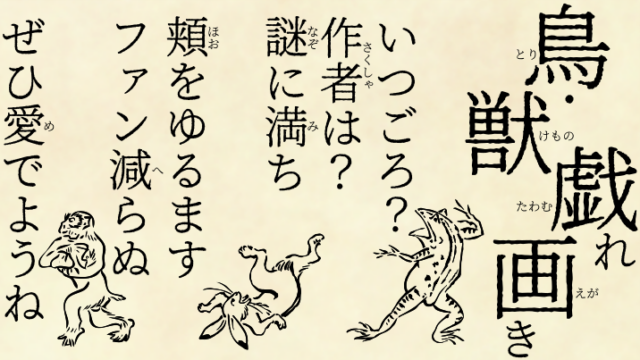 鳥・獣戯れ画き
いつごろ？
作者は？
謎に満ち
頬をゆるます
ファン減らぬ
ぜひ愛でようね
とり
けもの
たわむ
えが
さくしゃ
なぞ
み
ほお
へ
め